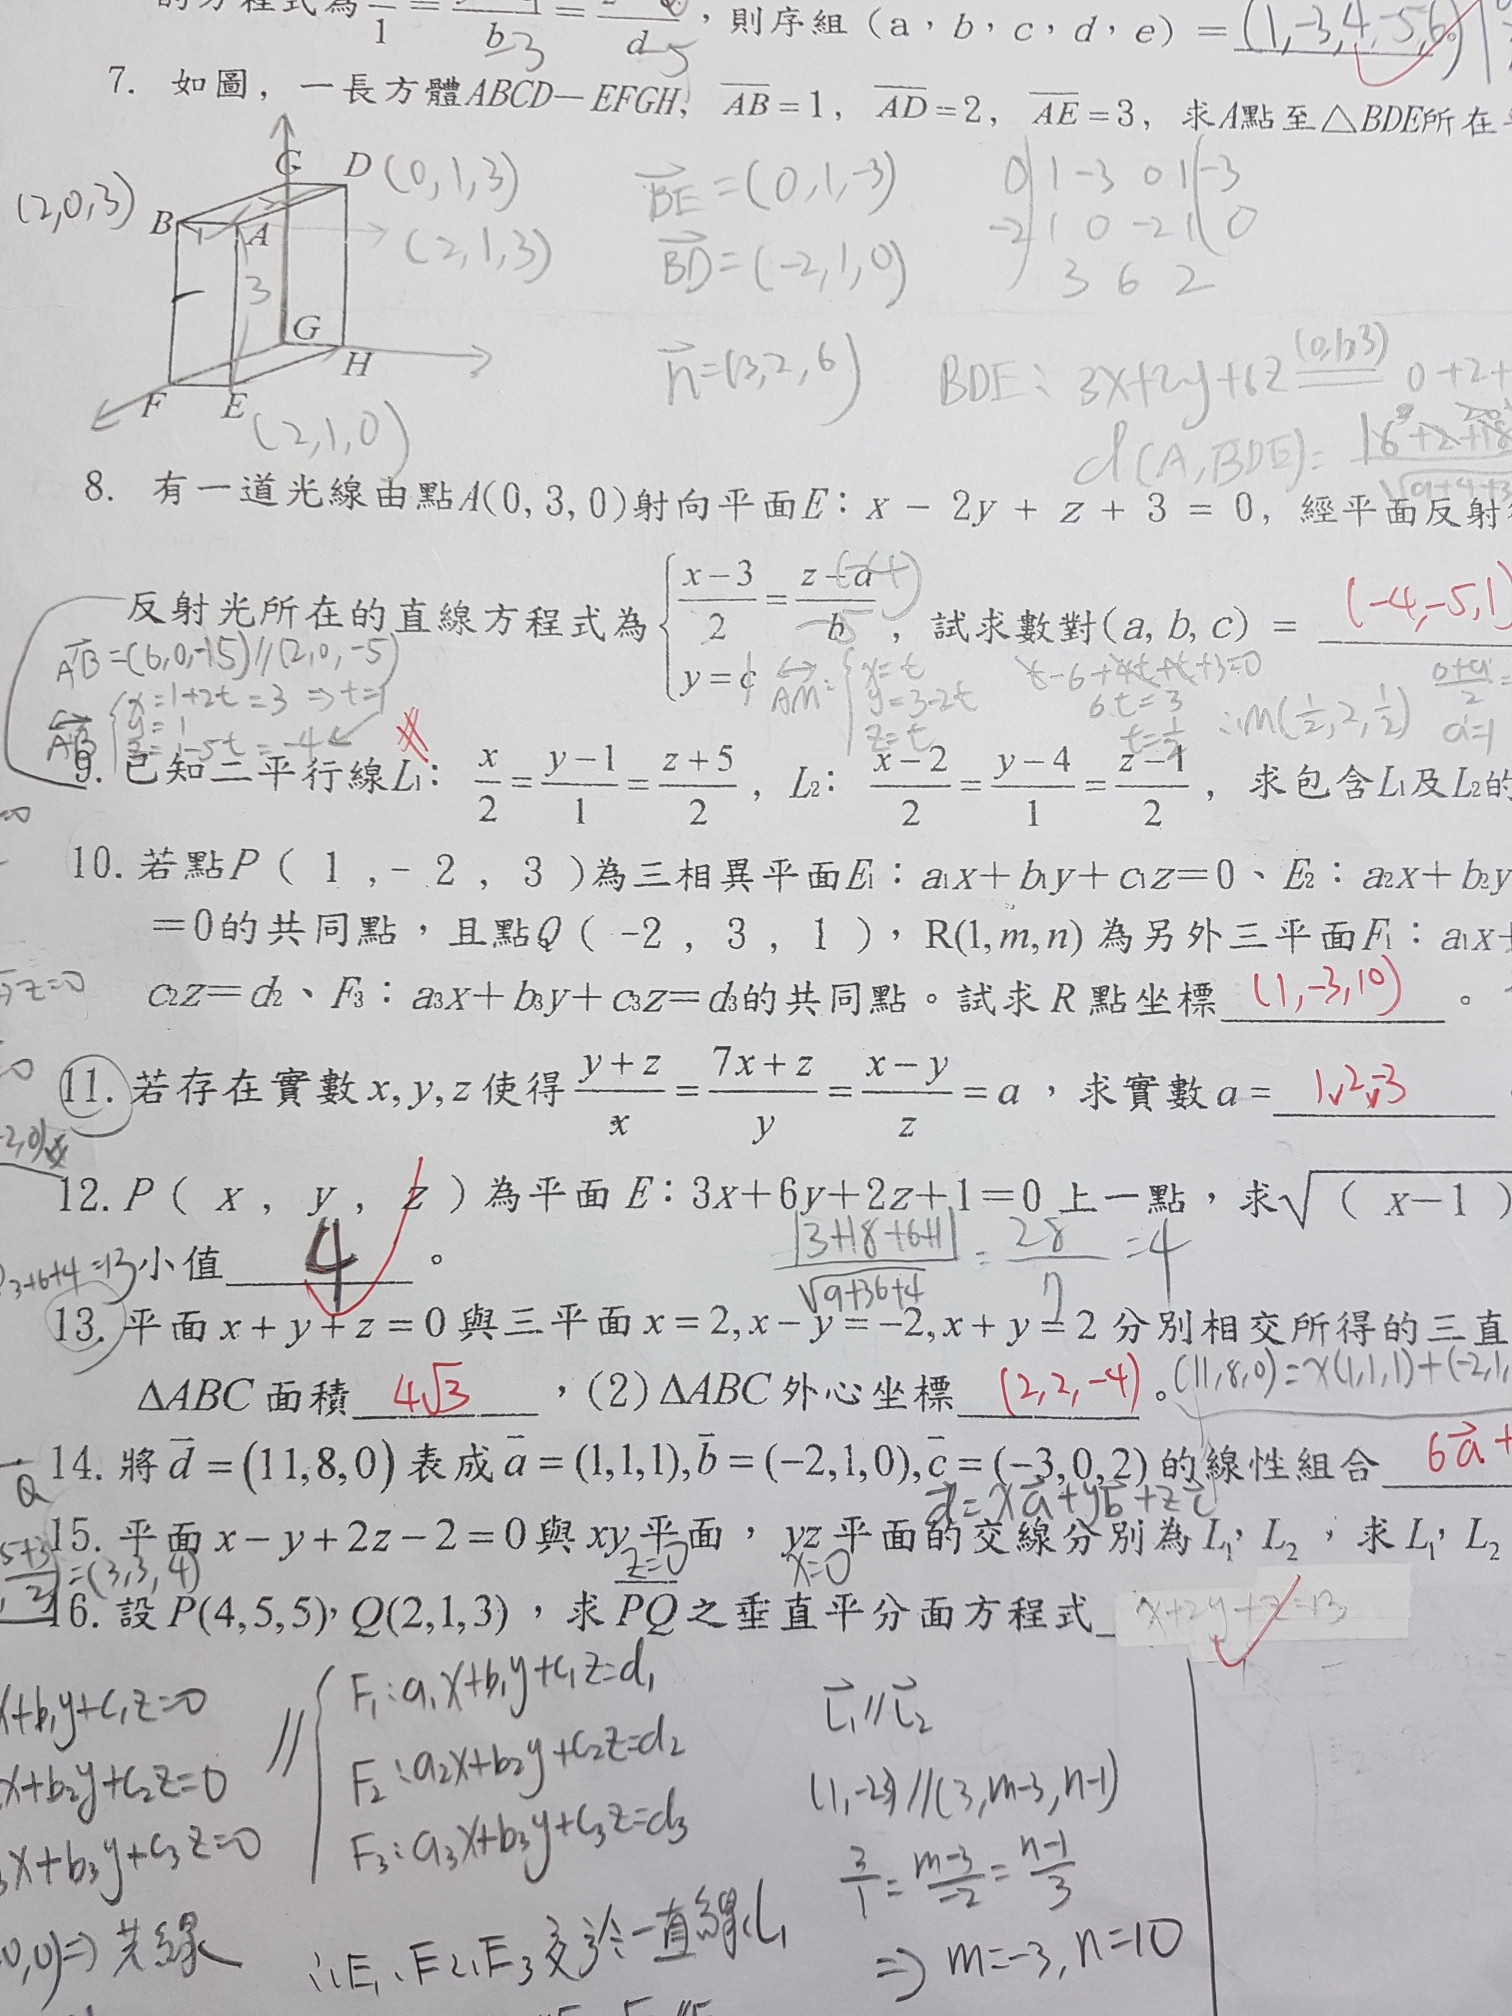 的方程式為 1 = b-3 = d-5 ,則序組(a,b,c,d,e)= (1,-3,4,-5,6)
7. 如圖, 一長方體ABCD-EFGH, AB=1, AD=2, AE=3, 求A點至△BDE所在
(2,0,3) B A C D (0,1,3)
(2,1,3)
1 2 3
G H F E (2,1,0)
BE=(0,1,-3)
BD=(-2,1,0)
0 1 -3 0 1 -3
-2 1 0 -2 1 0
3 6 2
n=(3,2,6)
BDE: 3x+2y+6z (0,1,3) 0+2+
d(A,BDE)=
8. 有一道光線由點A(0, 3, 0)射向平面E: x - 2y + z + 3 = 0, 經平面反射
反射光所在的直線方程式為 { (x-3)/2 = (z-a)/b , y=c , 試求數對(a, b, c) = (-4,-5,1)
AB=(6,0,-15)//(2,0,-5)
AB { x=1+2t=3 ⇒ t=1
y=1
z=1-5t=-4
AM: { x=t
y=3-2t
z=t
t-6+4t+t+3=0
6t=3
t=1/2
∴M(1/2,2,1/2)
9. 已知二平行線L1: x/2 = (y-1)/1 = (z+5)/2 , L2: (x-2)/2 = (y-4)/1 = (z-1)/2 , 求包含L1及L2的
10. 若點P ( 1 , - 2 , 3 )為三相異平面E1:a1x+b1y+c1z=0、E2:a2x+b2y
=0的共同點,且點Q ( -2 , 3 , 1 ),R(1,m,n) 為另外三平面F1:a1x+
c2z=d2、F3:a3x+b3y+c3z=d3的共同點。試求R點坐標 (1,-3,10) 。
⇒z=0
11. 若存在實數x, y, z使得 (y+z)/x = (7x+z)/y = (x-y)/z = a ,求實數a= 1,2,-3
12. P ( x , y , z ) 為平面 E:3x+6y+2z+1=0 上一點,求√( x-1 )
3+6+4=13 小值 4 。
|3+18+6+1|/√9+36+4 = 28/7 =4
13. 平面x+y+z=0與三平面x=2,x-y=-2,x+y=2分別相交所得的三直
ΔABC面積 4√3 ,(2)ΔABC外心坐標 (2,2,-4) 。
(11,8,0)=x(1,1,1)+(-2,1,
14. 將d=(11,8,0)表成a=(1,1,1),b=(-2,1,0),c=(-3,0,2)的線性組合 6a+
d=xa+yb+zc
15. 平面x-y+2z-2=0與xy平面, yz平面的交線分別為L1, L2 ,求L1, L2
z=0 x=0
=(3,3,4)
16. 設P(4,5,5), Q(2,1,3) ,求PQ之垂直平分面方程式 x+2y+z=13
x+b1y+c1z=0 // F1:a1x+b1y+c1z=d1
x+b2y+c2z=0 F2:a2x+b2y+c2z=d2
x+b3y+c3z=0 F3:a3x+b3y+c3z=d3
0,0)⇒共線 ∴E1、E2、E3交於一直線L1
L1//L2
(1,-2,3)//(3,m-3,n-1)
3/1=(m-3)/-2=(n-1)/3
⇒ m=-3, n=10